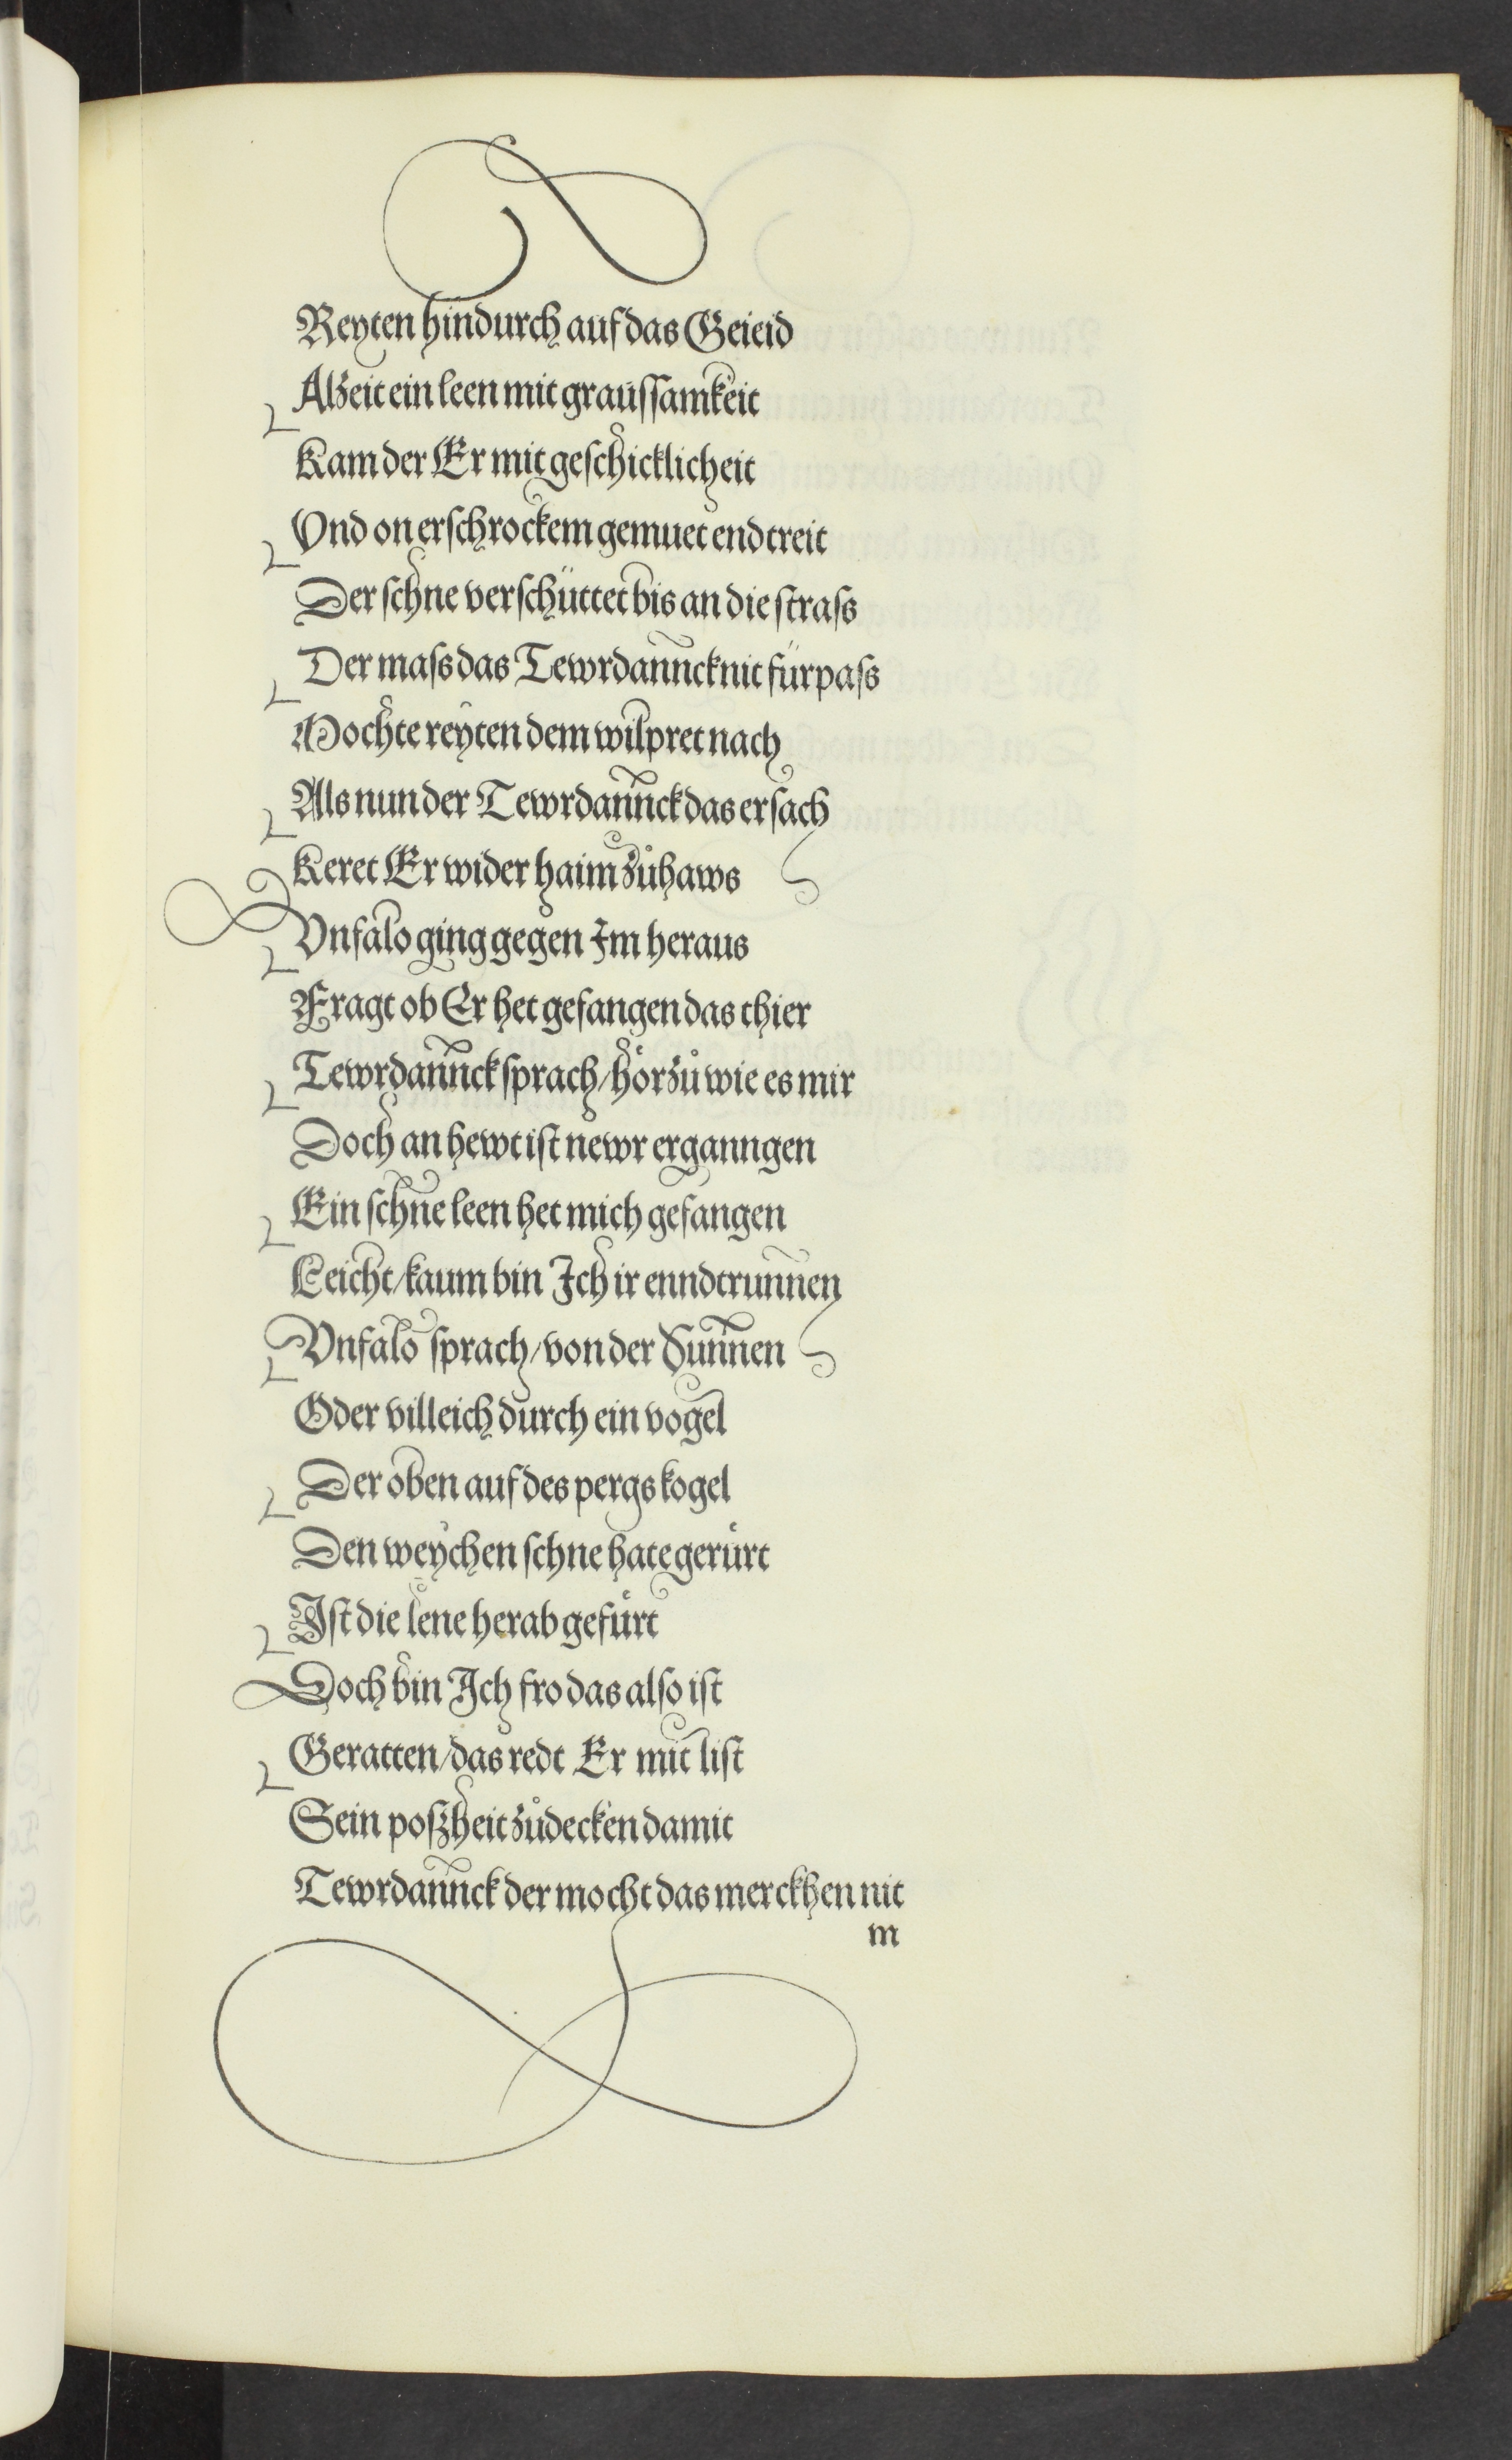 Reyten hindurch auf das Geieid
Alzeit ein leen mit graussamkeit
Kam der Er mit geschicklicheit
Vnd on erschrockem gemuet endtreit
Der schne verschüttet bis an die strass
Der mass das Tewrdannck nit fürpass
Mochte reyten dem wilpret nach
Als nun der Tewrdannck das ersach
Keret Er wider haim zůhaws
Vnfalo ging gegen Im heraus
Fragt ob Er het gefangen das thier
Tewrdannck sprach / hör zů wie es mir
Doch an hewt ist newr erganngen
Ein schne leen het mich gefangen
Leicht / kaum bin Ich ir enndtrunnen
Vnfalo sprach / von der Sunnen
Oder villeich durch ein vogel
Der oben auf des pergs kogel
Den weychen schne hat gerürt
Ist die lene herab gefürt
Doch bin Ich fro das also ist
Geratten / das redt Er mit list
Sein poszheit zůdecken damit
Tewrdannck der mocht das merckhen nit
m